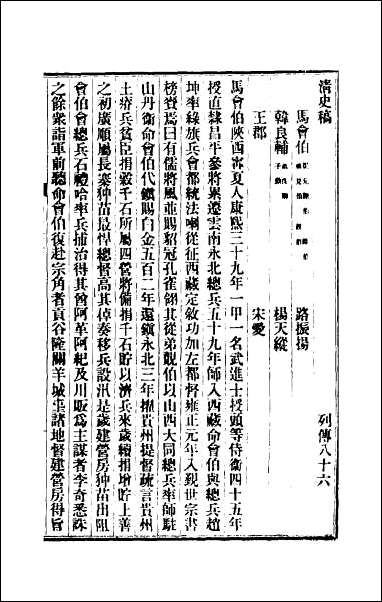 清史稿
列傳八十六
馬會伯 從兄際伯 見伯 覿伯
路振揚
韓良輔 弟良卿 子勳
楊天縱
王郡
宋愛
馬會伯陝西甯夏人康熙三十九年一甲一名武進士授頭等侍衞四十五年
授直隸昌平參將累遷雲南永北總兵五十九年師入西藏命會伯與總兵趙
坤率綠旗兵會都統法喇從征西藏定敘功加左都督雍正元年入覲世宗書
榜賚焉曰有儒將風並賜貂冠孔雀翎其從弟覿伯以山西大同總兵率師駐
山丹衞命會伯代鎭賜白金五百二年還鎭永北三年擢貴州提督疏言貴州
土瘠兵貧臣捐穀千石所屬四營將備捐千石貯以濟兵來歲續捐增貯上善
之初廣順屬長寨种苗最悍總督高其倬奏移兵設汛是歲建營房种苗出阻
會伯會總兵石禮哈率兵捕治得其酋阿革阿紀及川販爲主謀者李奇悉誅
之餘衆詣軍前聽命會伯復赴宗角者貢谷隆關羊城屯諸地督建營房得旨